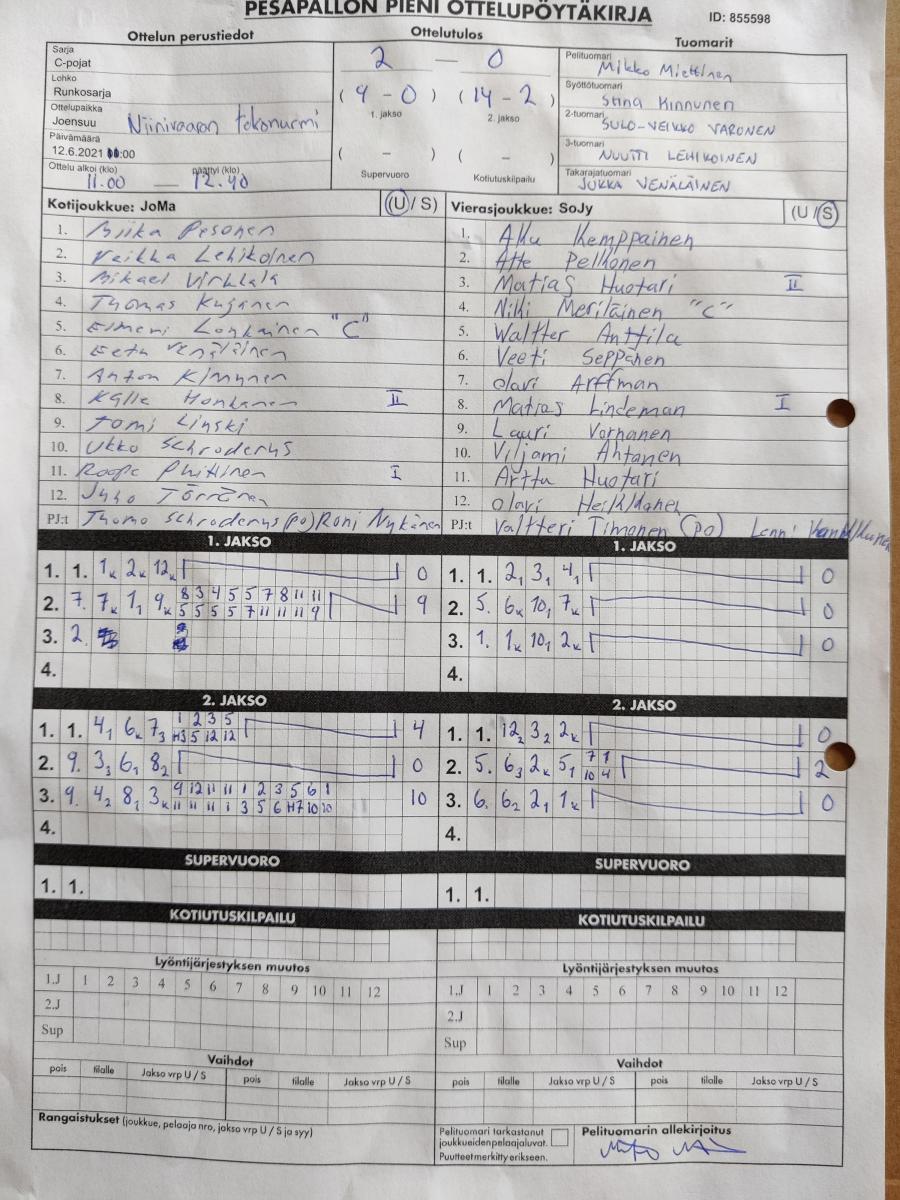 PESÄPALLON PIENI OTTELUPÖYTÄKIRJA
ID: 855598
Ottelun perustiedot
Ottelutulos
Tuomarit
Sarja
C-pojat
Lohko
Runkosarja
Ottelupaikka
Joensuu Niinivaaran tekonurmi
Päivämäärä
12.6.2021 :00
Ottelu alkoi (klo) päättyi (klo)
11.00 — 12.40
2 — 0
( 9 - 0 ) ( 14 - 2 )
1. jakso 2. jakso
( - ) ( - )
Supervuoro Kotiutuskilpailu
Pelituomari
Mikko Miettinen
Syöttötuomari
Stina Kinnunen
2-tuomari
SULO-VEIKKO VARONEN
3-tuomari
NUUTTI LEHIKOINEN
Takarajatuomari
JUKKA VENÄLÄINEN
Kotijoukkue: JoMa (U / S)
1. Miika Pesonen
2. Veikka Lehikoinen
3. Mikael Virkkala
4. Thomas Kujanen
5. Elmeri Lonkainen "C"
6. Eetu Venäläinen
7. Anton Kinnunen
8. Kalle Honkanen II
9. Tomi Linski
10. Ukko Schroderus
11. Roope Puittinen I
12. Juho Törrönen
PJ:t Thomo Schroderus (po) Roni Nykänen
Vierasjoukkue: SoJy (U / S)
1. Aku Kemppainen
2. Atte Pelkonen
3. Matias Huotari II
4. Niki Meriläinen "C"
5. Waltter Anttila
6. Veeti Seppänen
7. Olavi Arffman
8. Matias Lindeman I
9. Lauri Vornanen
10. Viljami Ahtonen
11. Arttu Huotari
12. Olavi Heikkinen
PJ:t Valtteri Timonen (po) Lenni
1. JAKSO
1. 1. 1k 2k 12k 0
2. 7. 7k 1₁ 9k 8 3 4 5 5 7 8 11 11 9
5 5 5 5 7 11 11 11 9
3. 2.
4.
1. JAKSO
1. 1. 2₁ 3₁ 4₁ 0
2. 5. 6k 10₁ 7k 0
3. 1. 1k 10₁ 2k 0
4.
2. JAKSO
1. 1. 4₁ 6k 7₃ 1 2 3 5 4
H3 5 12 12
2. 9. 3₃ 6₁ 8₂ 0
3. 9. 4₂ 8₁ 3k 9 12 11 11 1 2 3 5 6 1 10
11 11 11 1 3 5 6 H7 10 10
4.
2. JAKSO
1. 1. 12₂ 3₂ 2k 0
2. 5. 6₃ 2k 5₁ 7 1 2
10 4
3. 6. 6₂ 2₁ 1k 0
4.
SUPERVUORO
1. 1.
SUPERVUORO
1. 1.
KOTIUTUSKILPAILU
KOTIUTUSKILPAILU
Lyöntijärjestyksen muutos
1.J 1 2 3 4 5 6 7 8 9 10 11 12
2.J
Sup
Lyöntijärjestyksen muutos
1.J 1 2 3 4 5 6 7 8 9 10 11 12
2.J
Sup
Vaihdot
pois tilalle Jakso vrp U / S pois tilalle Jakso vrp U / S
Vaihdot
pois tilalle Jakso vrp U / S pois tilalle Jakso vrp U / S
Rangaistukset (joukkue, pelaaja nro, jakso vrp U / S ja syy)
Pelituomari tarkastanut
joukkueiden pelaajaluvat.
Puutteet merkitty erikseen.
Pelituomarin allekirjoitus